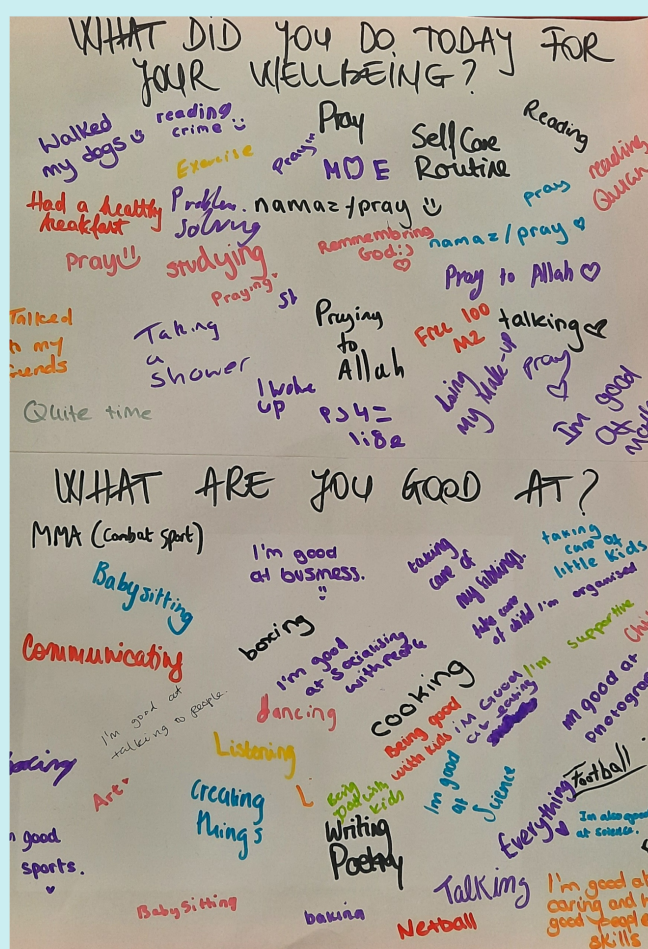 WHAT DID YOU DO TODAY FOR
YOUR WELLBEING?
Walked
my dogs
reading
crime
Exercise
Praying
Pray
M E
Self Care
Routine
Reading
reading
Quran
Had a healthy
breakfast
Problem
solving
namaz/pray
pray
Pray
studying
Remmembering
God:)
namaz/pray
Praying
st
Pray to Allah
Talked
my
Taking
a
shower
Praying
to
Allah
Free 100
M2
talking
Quite time
I woke
up
PS4=
life
Doing
My Make-up
pray
Im good
At
WHAT ARE YOU GOOD AT?
MMA (Combat Sport)
Babysitting
I'm good
at busness.
taking
care of
my siblings.
taking
care of
little kids
take care
of child
I'm organised
Communicating
boxing
I'm good
at Socialising
with People
I'm supportive
I'm good at
talking to people.
dancing
cooking
Being good
with kids
im Good
at eating
Im good at
Listening
Art
Creating
things
L
Being
good with
kids
Im good
at
Science
Football
Everything
Im also good
at science.
good
sports.
Writing
Poetry
Babysitting
baking
Talking
Netball
I'm good at
caring and
good people
skills